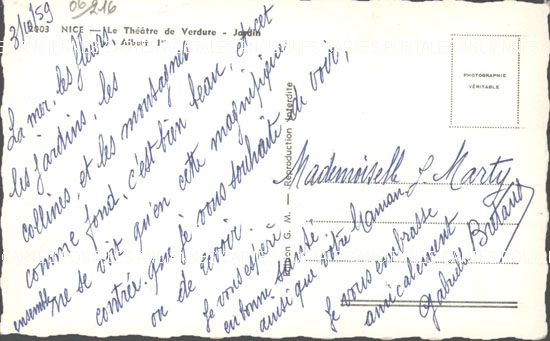 3/10/59
06/216
2003 NICE — Le Théâtre de Verdure - Jardin
Albert 1er
La mer, les fleurs,
les jardins, les
collines, et les montagnes
comme fond, c'est bien beau, et cet
ensemble ne se voit qu'en cette magnifique
contrée. Que je vous souhaite de voir,
ou de revoir.
Je vous espère
en bonne santé
ainsi que votre Maman,
Je vous embrasse
amicalement
Gabrielle
Mademoiselle J. Marty
Edition G. M. — Reproduction Interdite
PHOTOGRAPHIE
VÉRITABLE